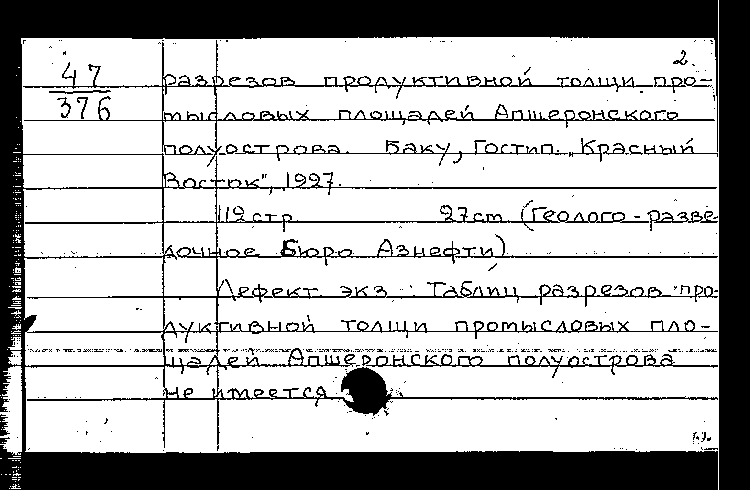 2.
47
376
разрезов продуктивной толщи про-
мысловых площадей Апшеронского
полуострова. Баку, Гостип. „Красный
Восток", 1927.
112 стр. 27 cm (Геолого-разве
дочное Бюро Азнефти)
Дефект. экз.: Таблиц разрезов про-
дуктивной толщи промысловых пло-
щадей Апшеронского полуострова
не имеется